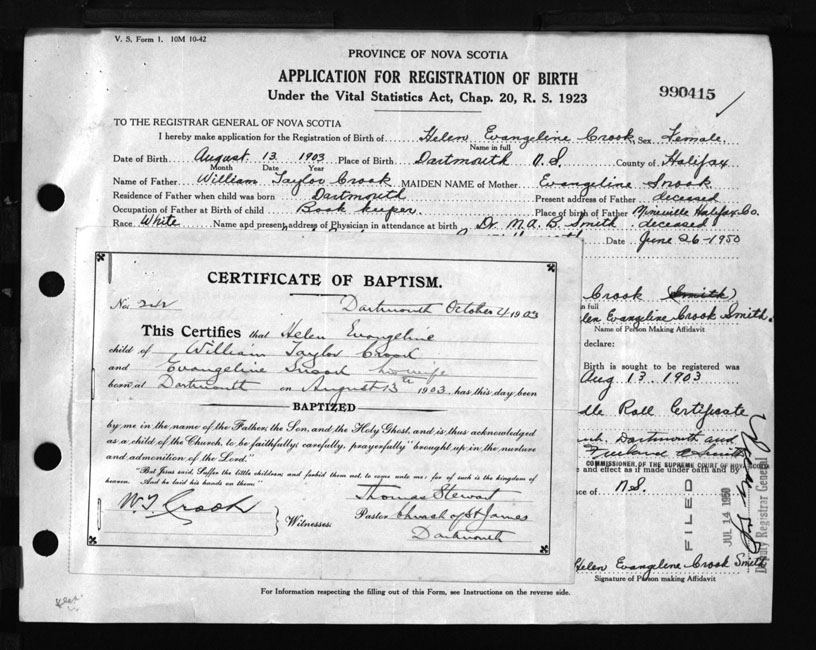 V. S. Form 1. 10M 10-42
PROVINCE OF NOVA SCOTIA
APPLICATION FOR REGISTRATION OF BIRTH
Under the Vital Statistics Act, Chap. 20, R. S. 1923
990415
TO THE REGISTRAR GENERAL OF NOVA SCOTIA
I hereby make application for the Registration of Birth of Helen Evangeline Crook Sex Female
Name in full
Date of Birth August 13 1903 Place of Birth Dartmouth N.S. County of Halifax
Month Date Year
Name of Father William Taylor Crook MAIDEN NAME of Mother Evangeline Snook
Residence of Father when child was born Dartmouth Present address of Father deceased
Occupation of Father at Birth of child Book keeper Place of birth of Father Halifax Co.
Race White Name and present address of Physician in attendance at birth Dr. M. A. B. Smith deceased
Date June 26-1950
CERTIFICATE OF BAPTISM.
No. 242 Dartmouth October 4 1903
This Certifies that Helen Evangeline
child of William Taylor Crook
and Evangeline Snook his wife
born at Dartmouth on August 13th 1903, has this day been
BAPTIZED
by me in the name of the Father, the Son, and the Holy Ghost, and is thus acknowledged
as a child of the Church, to be faithfully, carefully, prayerfully "brought up in the nurture
and admonition of the Lord."
"But Jesus said, Suffer the little children, and forbid them not, to come unto me: for of such is the kingdom of
heaven. And he laid his hands on them."
Thomas Stewart
W. T. Crook } Witnesses: Pastor Church of St James
Dartmouth
Crook (Smith)
n full
len Evangeline Crook Smith
Name of Person Making Affidavit
declare:
Birth is sought to be registered was
Aug 13. 1903
dle Roll Certificate
Dartmouth and
COMMISSIONER OF THE SUPREME COURT OF NOVA SCOTIA
e and effect as if made under oath and by
ce of N.S.
FILED
JUL 14 1950
Deputy Registrar General
Helen Evangeline Crook Smith
Signature of Person making Affidavit
For Information respecting the filling out of this Form, see Instructions on the reverse side.